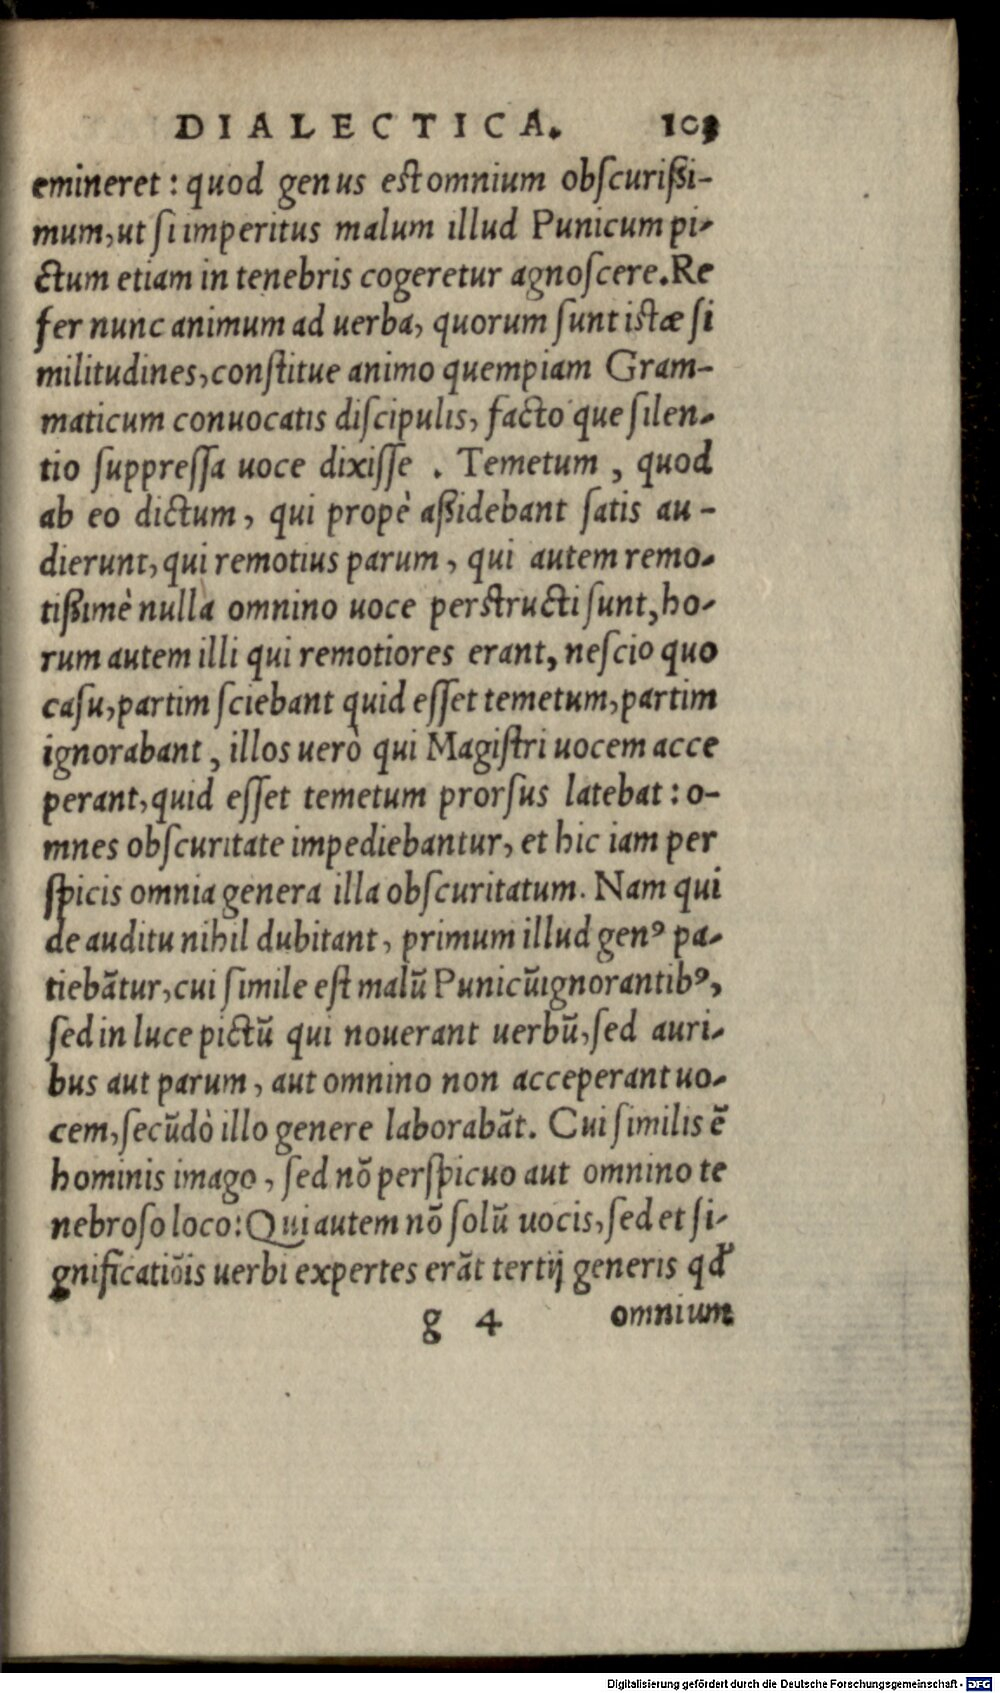 DIALECTICA. 103
emineret: quod genus est omnium obſcuriſsi-
mum, ut ſi imperitus malum illud Punicum pi-
ctum etiam in tenebris cogeretur agnoſcere. Re
fer nunc animum ad uerba, quorum ſunt istæ ſi
militudines, conſtitue animo quempiam Gram-
maticum conuocatis diſcipulis, facto que ſilen-
tio ſuppreſſa uoce dixiſſe. Temetum, quod
ab eo dictum, qui propè aſsidebant ſatis au-
dierunt, qui remotius parum, qui autem remo-
tiſsimè nulla omnino uoce perstructi ſunt, ho-
rum autem illi qui remotiores erant, neſcio quo
caſu, partim ſciebant quid eſſet temetum, partim
ignorabant, illos uerò qui Magiſtri uocem acce
perant, quid eſſet temetum prorſus latebat: o-
mnes obſcuritate impediebantur, et hic iam per
ſpicis omnia genera illa obſcuritatum. Nam qui
de auditu nihil dubitant, primum illud genꝰ pa-
tiebãtur, cui ſimile eſt malũ Punicũ ignorantibꝰ,
ſed in luce pictũ qui nouerant uerbũ, ſed auri-
bus aut parum, aut omnino non acceperant uo-
cem, ſecũdò illo genere laborabãt. Cui ſimilis ẽ
hominis imago, ſed nõ perſpicuo aut omnino te
nebroſo loco: Qui autem nõ ſolũ uocis, ſed et ſi-
gnificatiõis uerbi expertes erãt tertij generis qđ
g 4 omnium
Digitalisierung gefördert durch die Deutsche Forschungsgemeinschaft - DFG